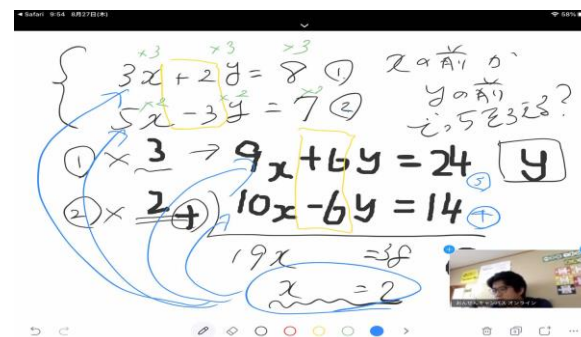 Safari 9:54 8月27日(木)
58%
×3 ×3 ×3
3x + 2y = 8 ①
×2 ×2 ×2
5x - 3y = 7 ②
xの前か
yの前
どっちをそろえる?
① × 3 → 9x + 6y = 24 ③
y
② × 2 + 10x - 6y = 14 ④
19x = 38
x = 2
オンライン